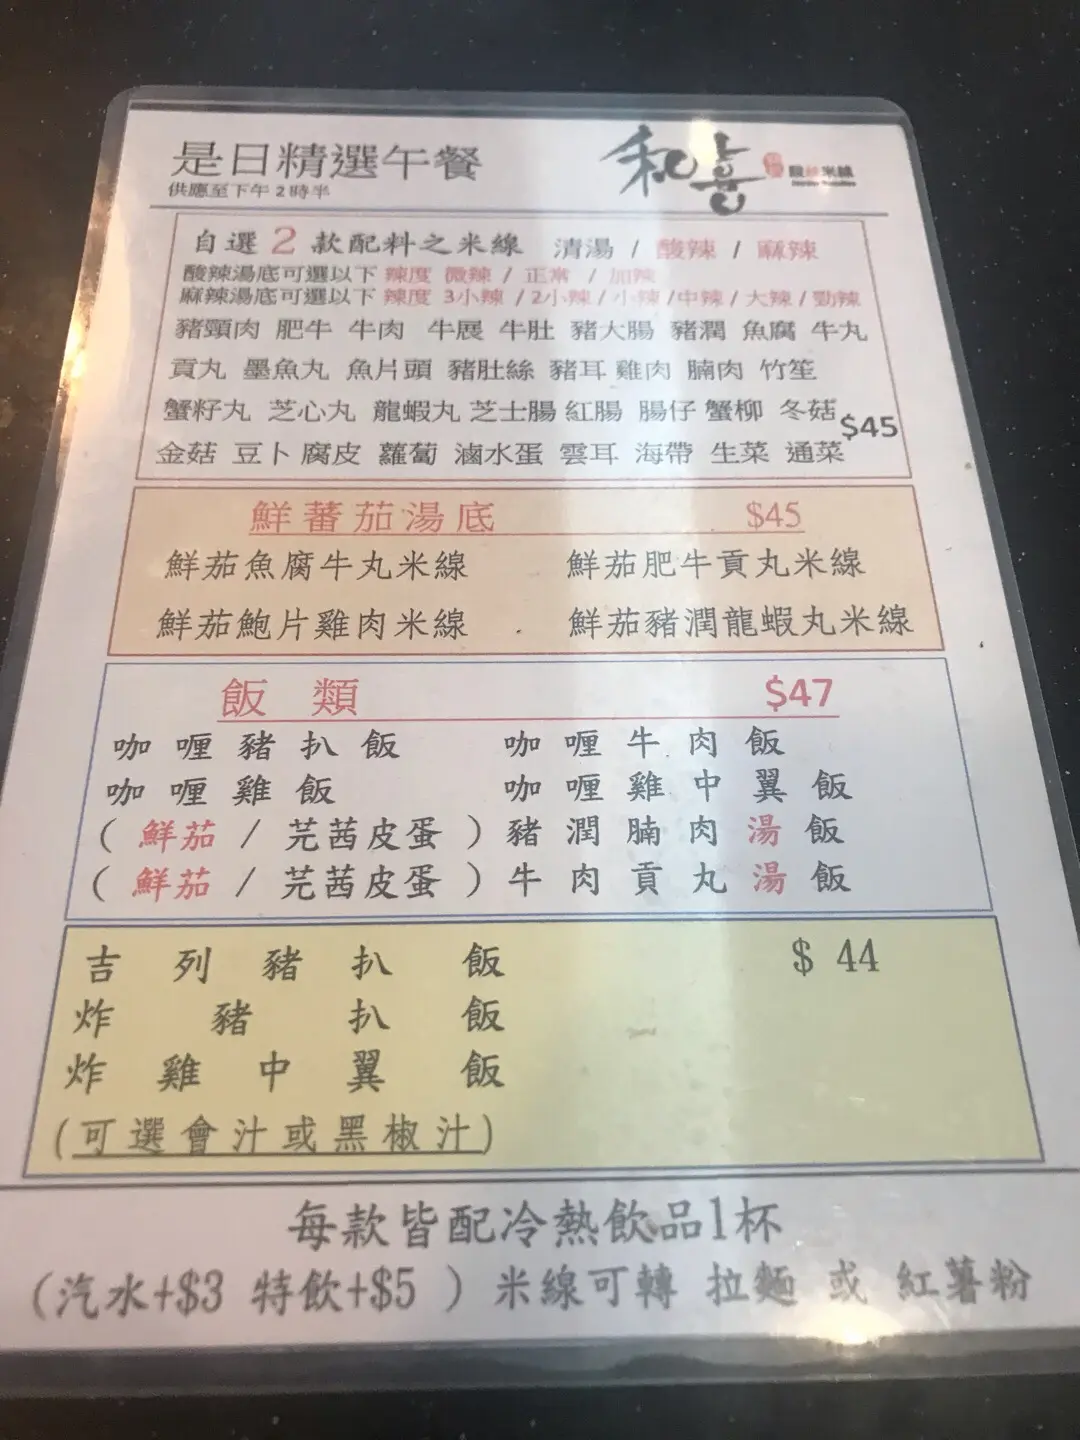 是日精選午餐
供應至下午2時半
和喜
酸辣米線
自選 2 款配料之米線 清湯 / 酸辣 / 麻辣
酸辣湯底可選以下 辣度 微辣 / 正常 / 加辣
麻辣湯底可選以下 辣度 3小辣 / 2小辣 / 小辣 / 中辣 / 大辣 / 勁辣
豬頸肉 肥牛 牛肉 牛展 牛肚 豬大腸 豬潤 魚腐 牛丸
貢丸 墨魚丸 魚片頭 豬肚絲 豬耳 雞肉 腩肉 竹笙
蟹籽丸 芝心丸 龍蝦丸 芝士腸 紅腸 腸仔 蟹柳 冬菇 $45
金菇 豆卜 腐皮 蘿蔔 滷水蛋 雲耳 海帶 生菜 通菜
鮮蕃茄湯底 $45
鮮茄魚腐牛丸米線 鮮茄肥牛貢丸米線
鮮茄鮑片雞肉米線 鮮茄豬潤龍蝦丸米線
飯 類 $47
咖喱豬扒飯 咖喱牛肉飯
咖喱雞飯 咖喱雞中翼飯
( 鮮茄 / 芫茜皮蛋 ) 豬潤腩肉湯飯
( 鮮茄 / 芫茜皮蛋 ) 牛肉貢丸湯飯
吉列豬扒飯 $ 44
炸豬扒飯
炸雞中翼飯
(可選會汁或黑椒汁)
每款皆配冷熱飲品1杯
(汽水+$3 特飲+$5 ) 米線可轉 拉麵 或 紅薯粉